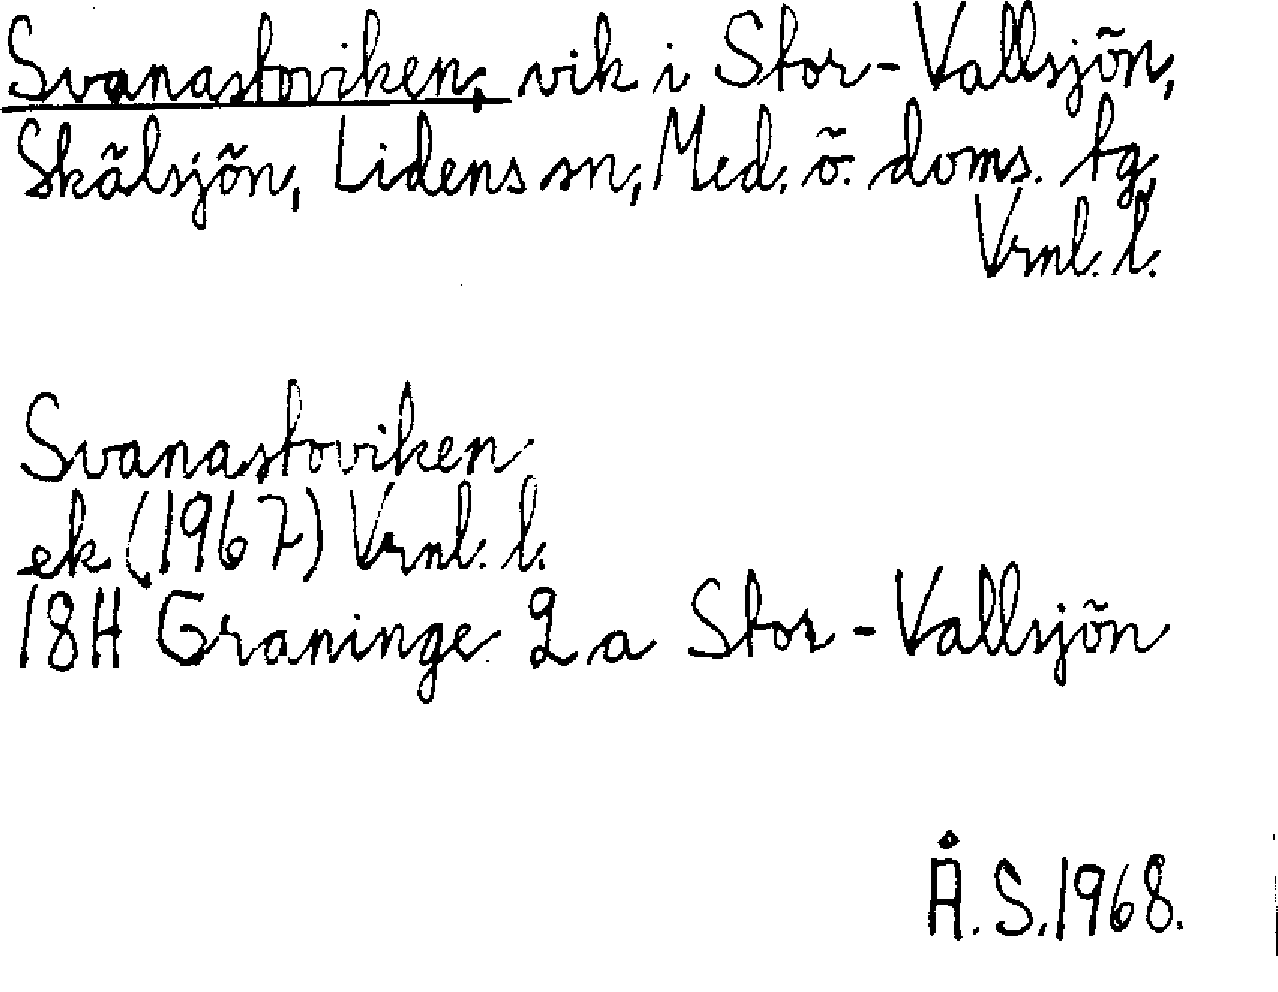 Svanastoviken, vik i Stor-Vallsjön,
Skälsjön, Lidens sn, Med. ö. doms. tg,
Vrnl. l.
Svanastoviken
ek (1967) Vrnl. l.
18H Graninge 2 a Stor-Vallsjön
Å. S. 1968.